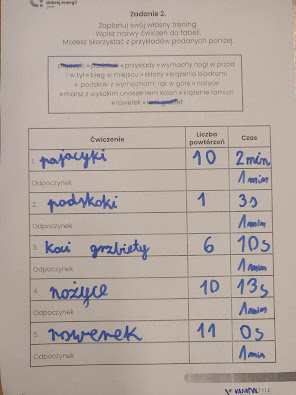 dobrej energii
Zadanie 2.
Zaplanuj swój własny trening.
Wpisz nazwy ćwiczeń do tabeli.
Możesz skorzystać z przykładów podanych poniżej.
pajacyki • podskoki • przysiady • wymachy nogi w przód
i w tył • bieg w miejscu • skłony • krążenia biodrami
• podskoki z wymachami rąk w górę • nożyce
• marsz z wysokim unoszeniem kolan • krążenie ramion
• rowerek • koci grzbiet
Ćwiczenie Liczba powtórzeń Czas
1. pajacyki 10 2 min
Odpoczynek 1 min
2. podskoki 1 3s
Odpoczynek 1 min
3. koci grzbiety 6 10s
Odpoczynek 1 min
4. nożyce 10 13s
Odpoczynek 1 min
5. rowerek 11 0s
Odpoczynek 1 min